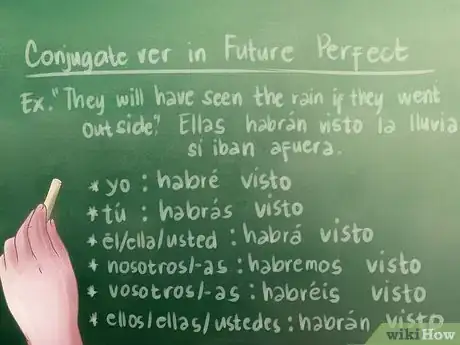 Conjugate ver in Future Perfect
Ex. "They will have seen the rain if they went
outside." Ellas habrán visto la lluvia
si iban afuera.
* yo : habré visto
* tú : habrás visto
* él/ella/usted : habrá visto
* nosotros/-as : habremos visto
* vosotros/-as : habréis visto
* ellos/ellas/ustedes : habrán visto
wikiHow